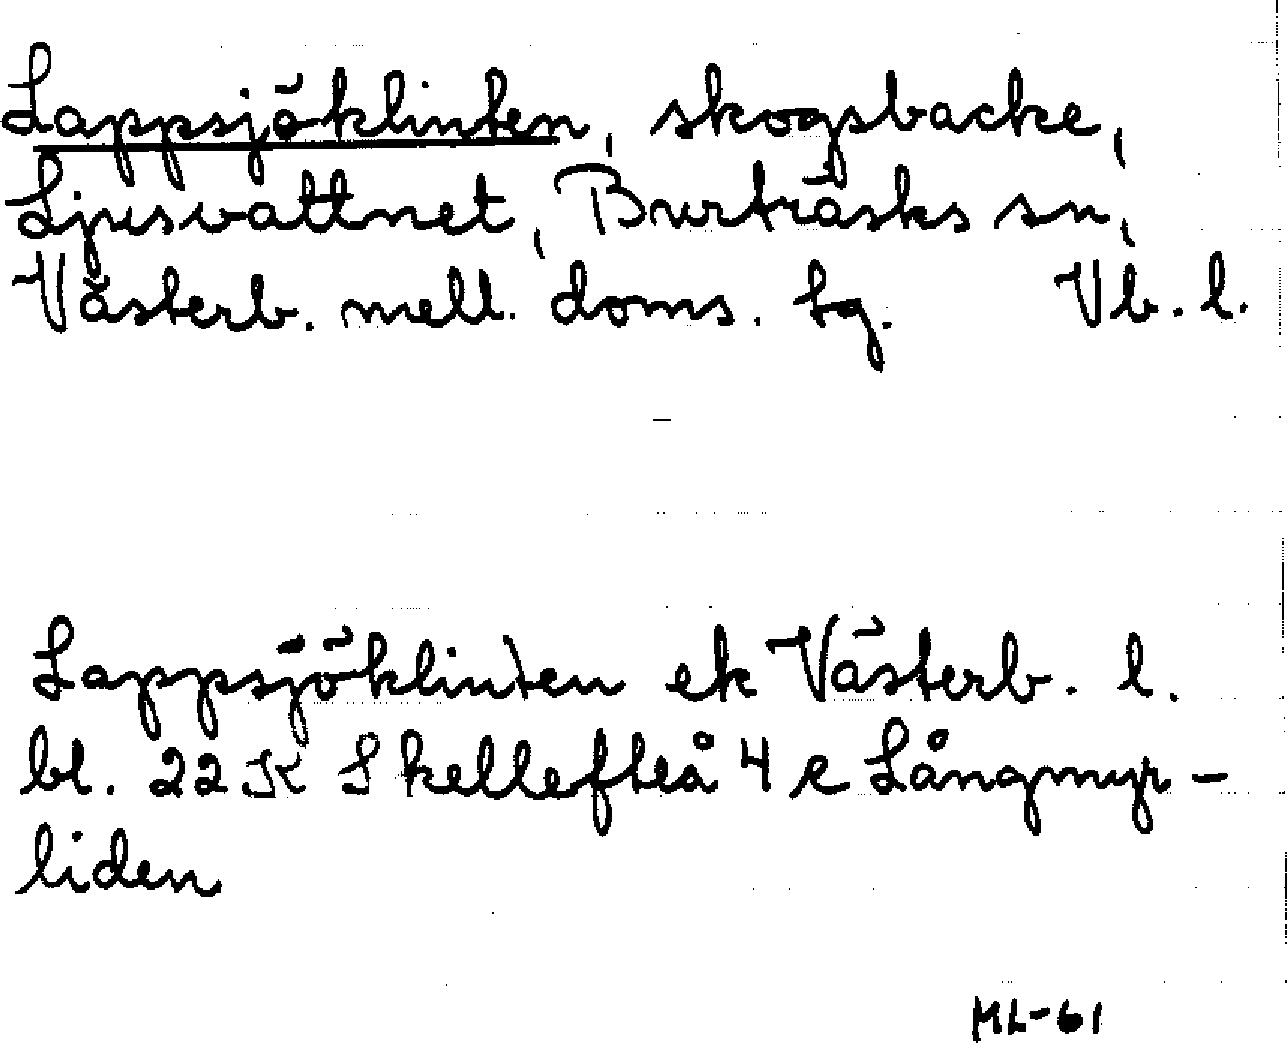 Lappsjöklinten, skogsbacke,
Ljusvattnet, Burträsks sn,
Västerb. mell. doms. tg. Vb. l.
Lappsjöklinten ek Västerb. l.
bl. 22 K Skellefteå 4 e Långmyr-
liden
ML-61